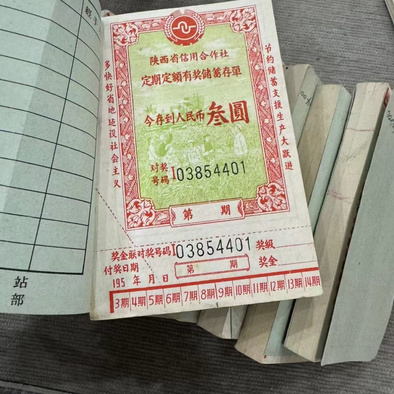 陕西省信用合作社
定期定額有奖储蓄存單
今存到人民币叁圆
对奖号碼 I 03854401
第 期
多快好省地建设社会主义
节約储蓄支援生产大跃进
奖金联对奖号碼 I 03854401 奖級
付奖日期 第 期 奖金
195 年 月 日
3期 4期 5期 6期 7期 8期 9期 10期 11期 12期 13期 14期
站
部